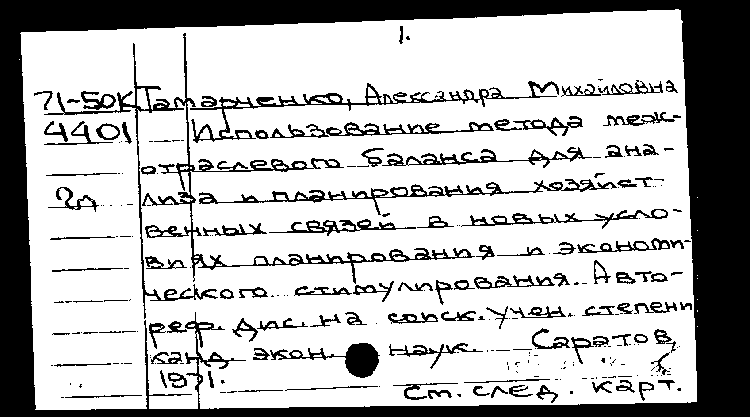 1.
71-50к Тамарченко, Александра Михайловна
4401 Использование метода меж-
отраслевого баланса для ана-
2л лиза и планирования хозяйст-
венных связей в новых усло-
виях планирования и экономи-
ческого стимулирования. Авто-
реф. дис. на соиск. учен. степени
канд. экон. наук. Саратов,
1971.
См. след. карт.